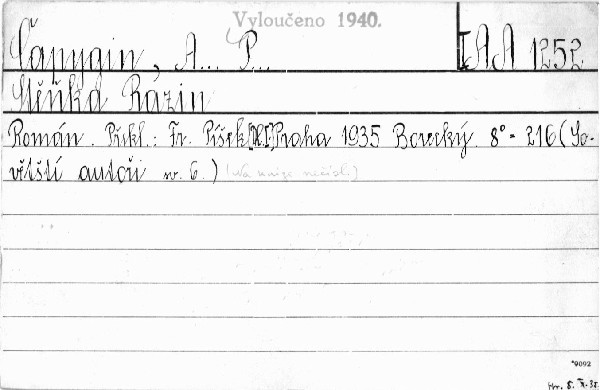 Vyloučeno 1940.
Čapygin, A... P... I AA 1252
Stěnka Rázin
Román. Překl.: Fr. Píšek Praha 1935 Borecký. 8° - 216 (So-
větští autoři sv. 6.)
*9092